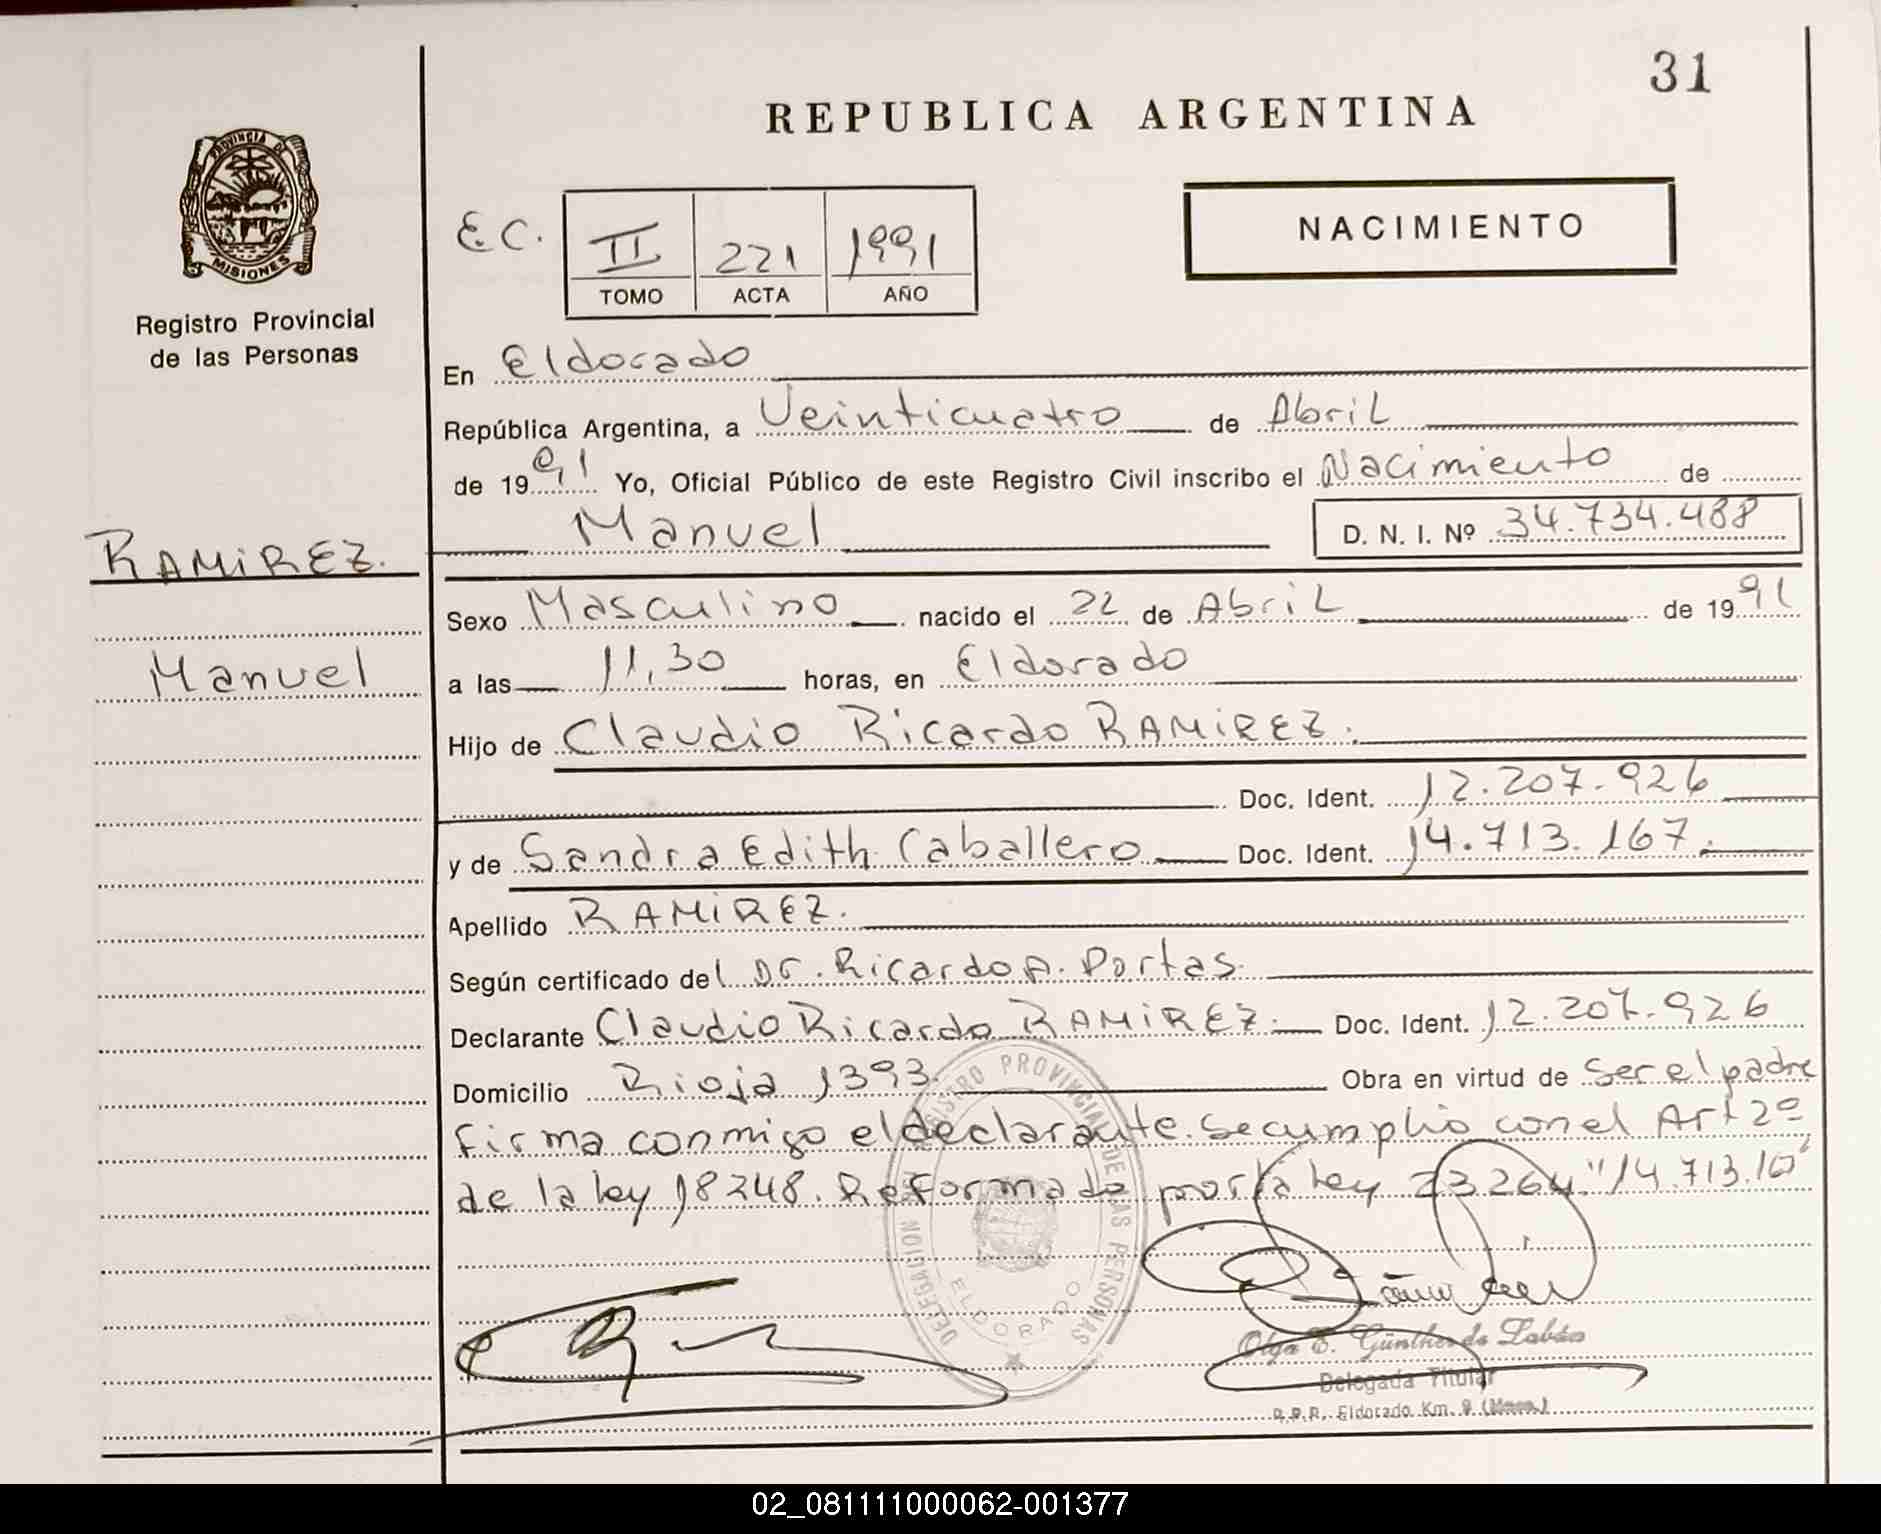 31
REPUBLICA ARGENTINA
PROVINCIA DE
MISIONES
Registro Provincial
de las Personas
E.C. II 221 1991
TOMO ACTA AÑO
NACIMIENTO
En Eldorado
República Argentina, a Veinticuatro de Abril
de 1991 Yo, Oficial Público de este Registro Civil inscribo el Nacimiento de
Manuel D. N. I. Nº 34.734.488
RAMIREZ.
Sexo Masculino nacido el 22 de Abril de 1991
Manuel
a las 11,30 horas, en Eldorado
Hijo de Claudio Ricardo RAMIREZ.
Doc. Ident. 12.207.926
y de Sandra Edith Caballero Doc. Ident. 14.713.167.
Apellido RAMIREZ.
Según certificado del Dr. Ricardo A. Portas.
Declarante Claudio Ricardo RAMIREZ. Doc. Ident. 12.207.926
Domicilio Rioja 1393. Obra en virtud de ser el padre
firma conmigo el declarante. Se cumplio con el Art 2º
de la ley 18248. Reformado por la ley 23264. "14.713.16
REGISTRO PROVINCIAL DE LAS PERSONAS
DELEGACION
ELDORADO
Olga E. Günther de Labán
Delegada Titular
R.P.P. Eldorado Km. 9 (Mnes.)
02_081111000062-001377